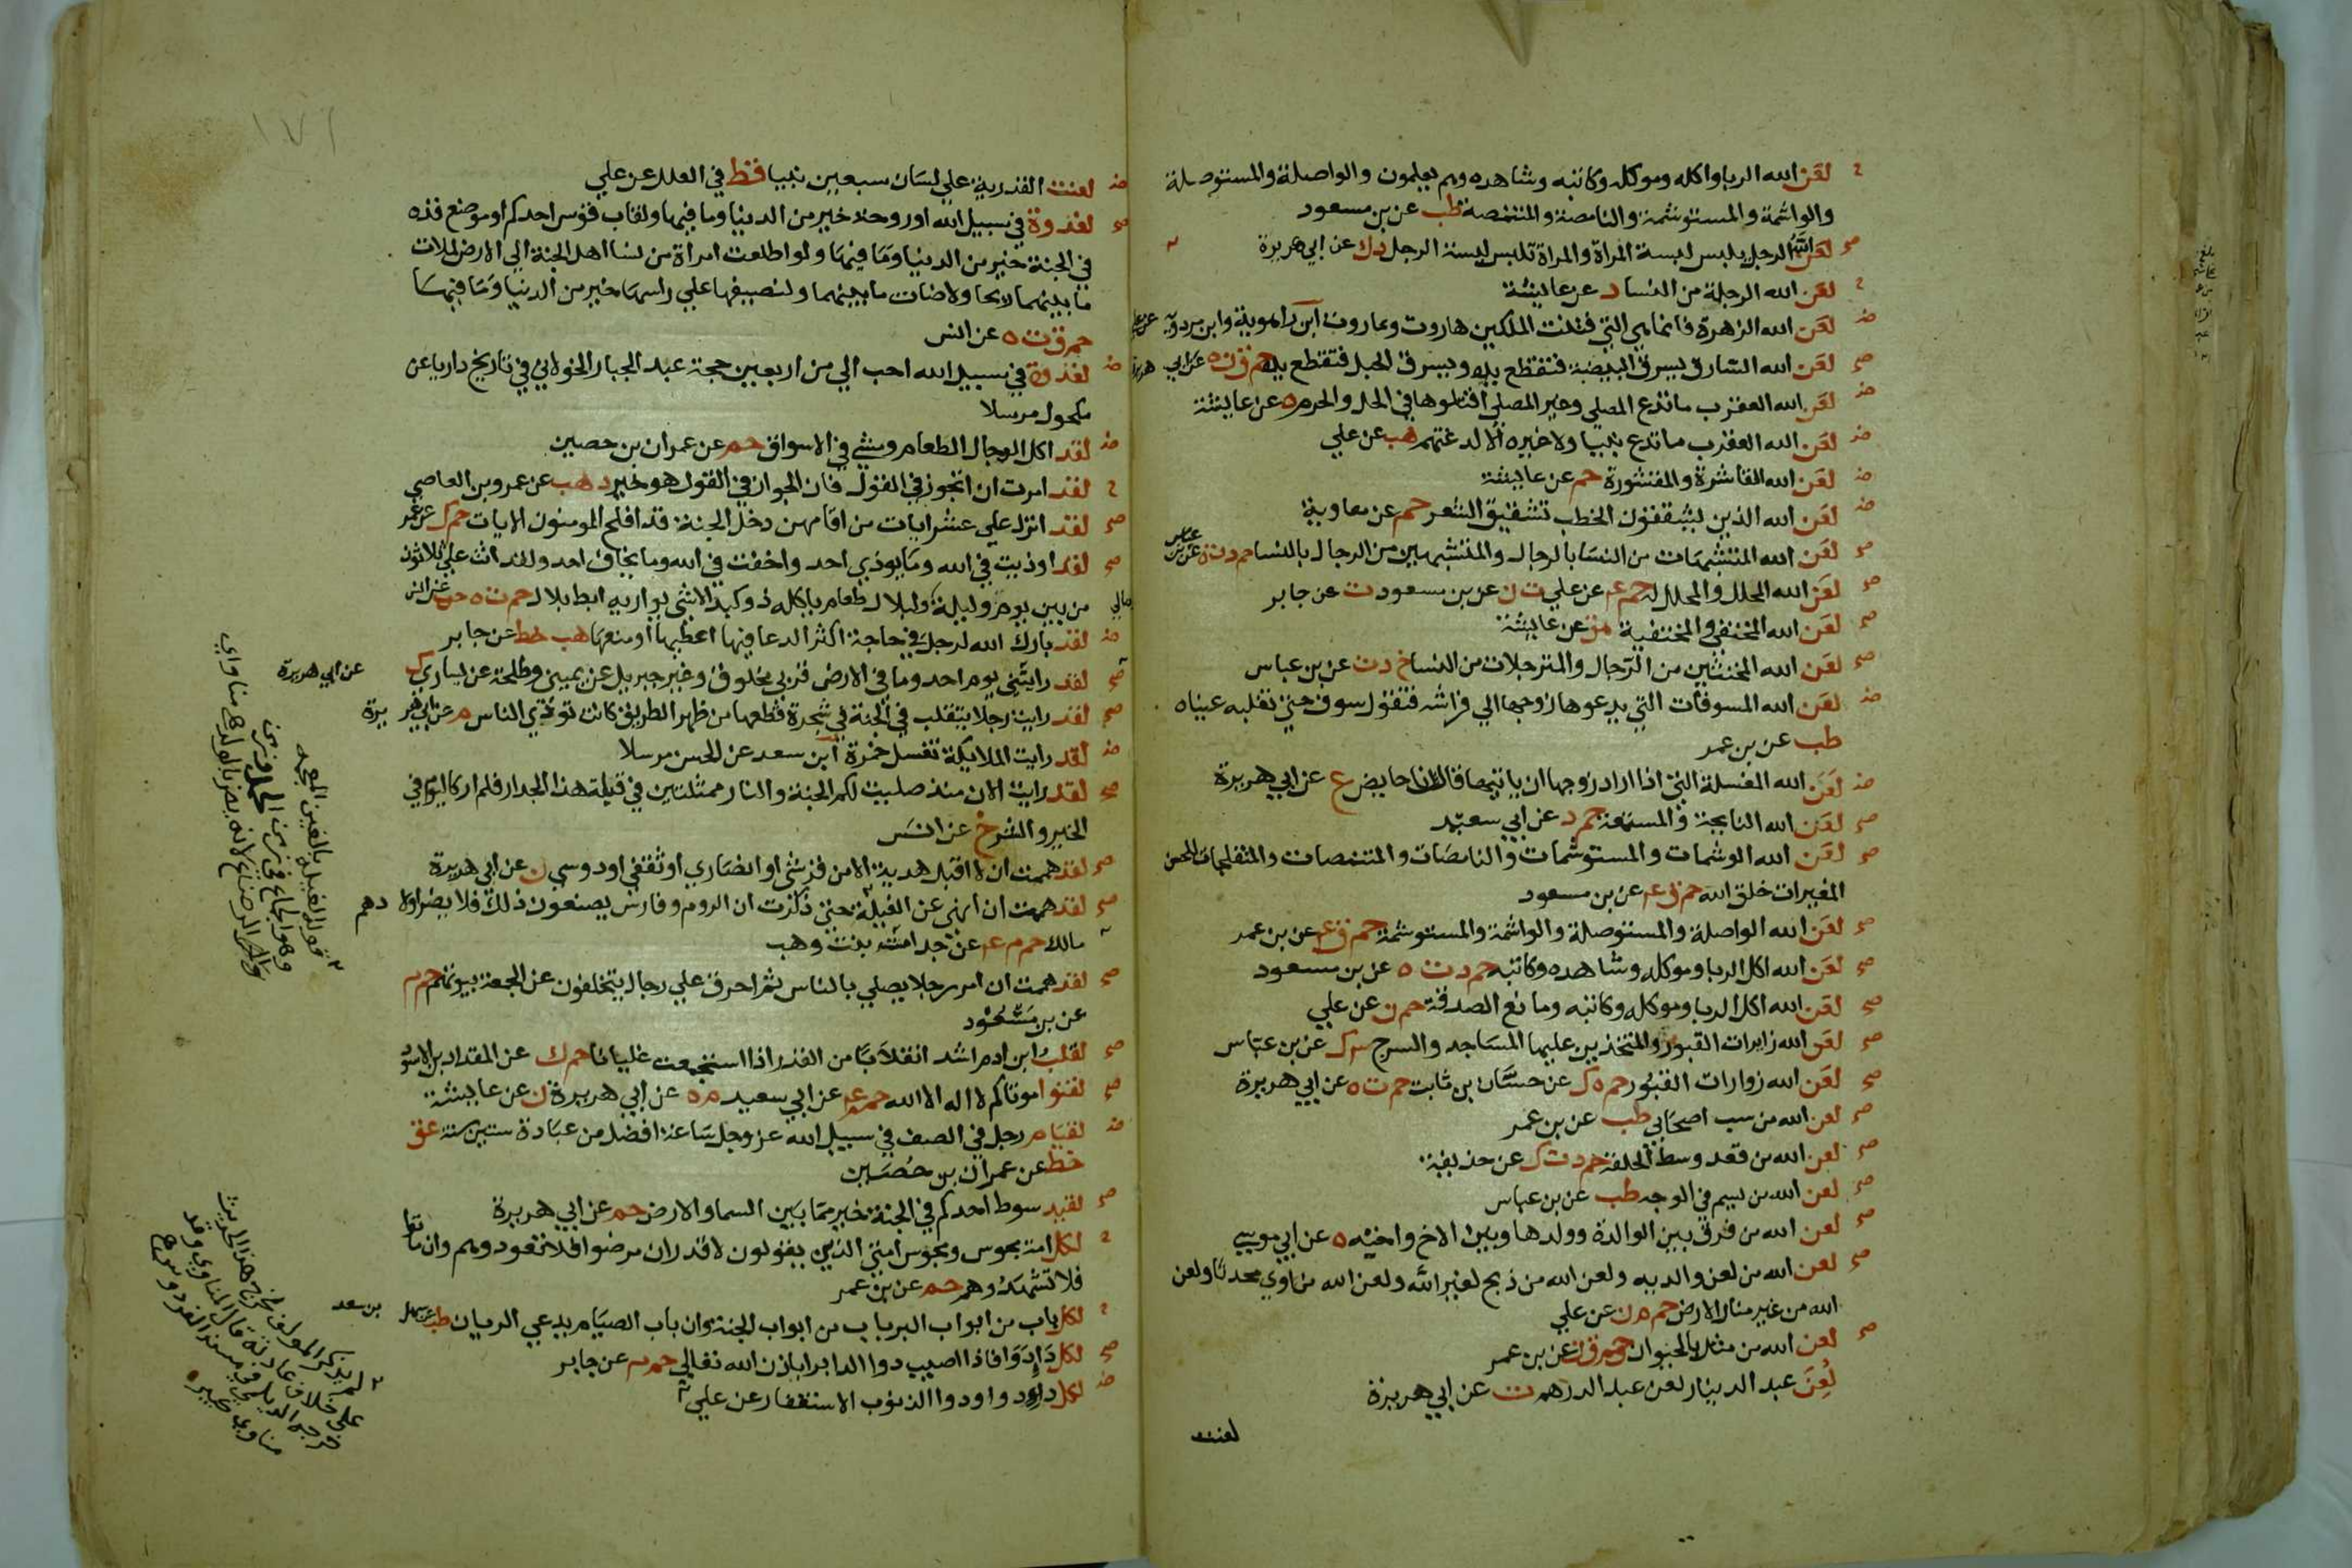 لعن الله الربا واكله وموكله وكاتبه وشاهده وهم يعلمون والواصلة والمستوصلة
والواشمة والمستوشمة والنامصة والمتنمصة طب عن بن مسعود
لعن الله الرجل يلبس لبسة المراة والمراة تلبس لبسة الرجل دك عن ابي هريرة
لعن الله الرجلة من النسا د عن عايشة
لعن الله الزهرة فانها هي التي فتنت الملكين هاروت وماروت ابن راهوية وابن مردويه عن علي
لعن الله السارق يسرق البيضة فتقطع يده ويسرق الحبل فتقطع يده حم ق ن ه عن ابي هريرة
لعن الله العقرب ما تدع المصلي وغير المصلي اقتلوها في الحل والحرم ه عن عايشة
لعن الله العقرب ما تدع نبيا ولا غيره الا لدغتهم هب عن علي
لعن الله القاشرة والمقشورة حم عن عايشة
لعن الله الذين يشققون الخطب تشقيق الشعر حم عن معاوية
لعن الله المتشبهات من النسا بالرجال والمتشبهين من الرجال بالنسا حم د ت ه عن بن عباس
لعن الله المحلل والمحلل له حم ع عن علي ت ن عن بن مسعود ت عن جابر
لعن الله المختفي والمختفية هق عن عايشة
لعن الله المخنثين من الرجال والمترجلات من النسا خ د ت عن بن عباس
لعن الله المسوفات التي يدعوها زوجها الي فراشه فتقول سوف حتي تغلبه عيناه
طب عن بن عمر
لعن الله المغسلة التي اذا اراد زوجها ان ياتيها قالت انا حايض ع عن ابي هريرة
لعن الله النايحة والمستمعة حم د عن ابي سعيد
لعن الله الوشمات والمستوشمات والنامصات والمتنمصات والمتفلجات للحسن
المغيرات خلق الله حم ق ع عن بن مسعود
لعن الله الواصلة والمستوصلة والواشمة والمستوشمة حم ق ع عن بن عمر
لعن الله اكل الربا وموكله وشاهده وكاتبه حم د ت ه عن بن مسعود
لعن الله اكل الربا وموكله وكاتبه ومانع الصدقة حم ن عن علي
لعن الله زايرات القبور والمتخذين عليها المساجد والسرج ٣ ك عن بن عباس
لعن الله زوارات القبور حم ه ك عن حسان بن ثابت حم ت ه عن ابي هريرة
لعن الله من سب اصحابي طب عن بن عمر
لعن الله من قعد وسط الحلقة حم د ت ك عن حذيفة
لعن الله من يسم في الوجه طب عن بن عباس
لعن الله من فرق بين الوالدة وولدها وبين الاخ واخيه ه عن ابي موسي
لعن الله من لعن والديه ولعن الله من ذبح لغير الله ولعن الله من اوي محدثا ولعن
الله من غير منار الارض حم م ن عن علي
لعن الله من مثل بالحيوان حم ق ن عن بن عمر
لعن عبد الدينار لعن عبد الدرهم ت عن ابي هريرة
لعنت
١٧٦
لعنت القدرية علي لسان سبعين نبيا قط في العلل عن علي
لغدوة في سبيل الله او روحة خير من الدنيا وما فيها ولقاب قوس احدكم او موضع قده
في الجنة خير من الدنيا وما فيها ولو اطلعت امراة من نسا اهل الجنة الي الارض لملات
ما بينهما ريحا ولاضات ما بينهما ولنصيفها علي راسها خير من الدنيا وما فيها
حم ق ت ه عن انس
لغدوة في سبيل الله احب الي من اربعين حجة عبد الجبار الخولاني في تاريخ داريا عن
مكحول مرسلا
لقد اكل الدجال الطعام ومشي في الاسواق حم عن عمران بن حصين
لقد امرت ان اتجوز في القول فان الجواز في القول هو خير د هب عن عمرو بن العاصي
لقد انزل علي عشر ايات من اقامهن دخل الجنة قد افلح المومنون الايات حم ك عن عمر
لقد اوذيت في الله وما يوذي احد واخفت في الله وما يخاف احد ولقد اتت علي ثلاثون
من بين يوم وليلة ومالي ولبلال طعام ياكله ذو كبد الا شي يواريه ابط بلال حم ت ه حب عن انس
لقد بارك الله لرجل في حاجة اكثر الدعا فيها اعطيها او منعها هب خط عن جابر
لقد رايتني يوم احد وما في الارض قربي مخلوق غير جبريل عن يميني وطلحة عن يساري ك عن ابي هريرة
لقد رايت رجلا يتقلب في الجنة في شجرة قطعها من ظهر الطريق كانت توذي الناس م عن ابي هريرة
لقد رايت الملايكة تغسل حمزة ابن سعد عن الحسن مرسلا
لقد رايت الان منذ صليت لكم الجنة والنار ممثلتين في قبلة هذا الجدار فلم ار كاليوم في
الخير والشر خ عن انس
لقد هممت ان لا اقبل هدية الا من قرشي او انصاري او ثقفي او دوسي ن عن ابي هريرة
لقد هممت ان انهي عن الغيلة حتي ذكرت ان الروم وفارس يصنعون ذلك فلا يضر اولادهم
مالك حم م ع عن جدامة بنت وهب
لقد هممت ان امر رجلا يصلي بالناس ثم احرق علي رجال يتخلفون عن الجمعة بيوتهم حم م
عن بن مسعود
لقلب ابن ادم اشد انقلابا من القدر اذا استجمعت غليانا حم ك عن المقداد بن الاسود
لقنوا موتاكم لا اله الا الله حم م ع عن ابي سعيد م ه عن ابي هريرة ن عن عايشة
لقيام رجل في الصف في سبيل الله عز وجل ساعة افضل من عبادة ستين سنة عق
خط عن عمران بن حصين
لقيد سوط احدكم في الجنة خير مما بين السما والارض حم عن ابي هريرة
لكل امة مجوس ومجوس امتي الذين يقولون لا قدر ان مرضوا فلا تعودوهم وان ماتوا
فلا تشهدوهم حم عن بن عمر
لكل باب من ابواب البر باب من ابواب الجنة وان باب الصيام يدعي الريان طب عن سهل بن سعد
لكل دا دوا فاذا اصيب دوا الدا برا باذن الله تعالي حم م عن جابر
لكل دا دوا ودوا الذنوب الاستغفار عن علي
قوله الغيلة بالغين المعجمه
وهو الجماع في زمن الحمل او زمن
الرضاع لانه يضر بالولد اه مناوي
لم يذكر المولف مخرج هذا الحديث
علي خلاف عادته قال المناوي وقد
خرجه الديلمي في مسند الفردوس اه
مناوي كبير